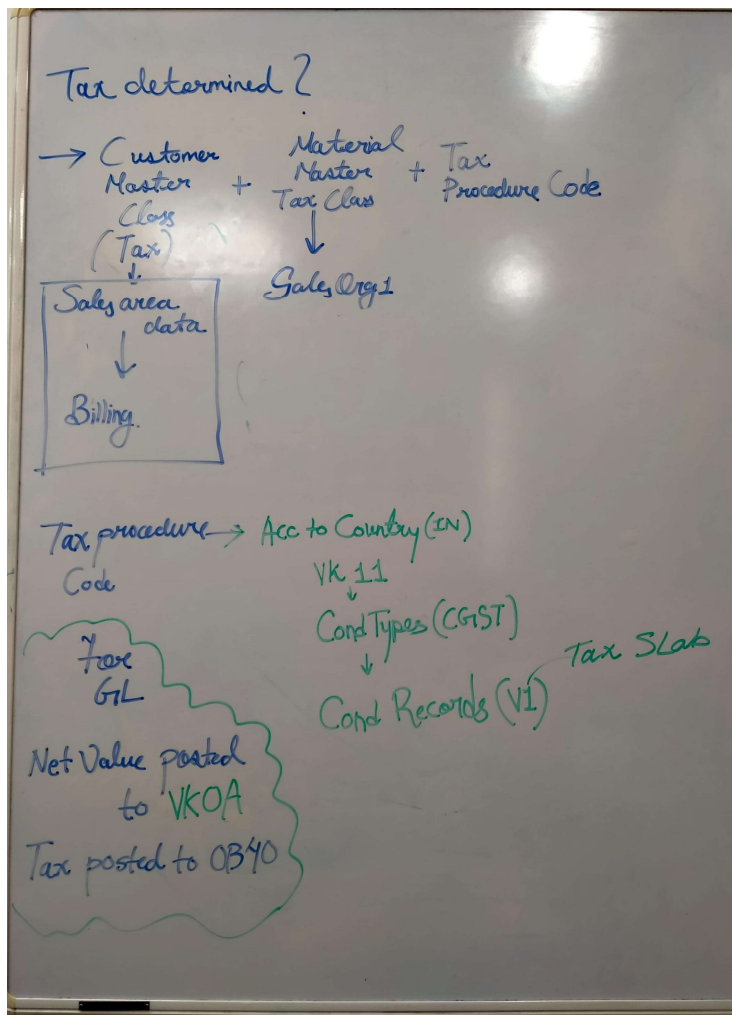 Tax determined ?
→ Customer Master Class (Tax)
+
Material Master Tax Class
+
Tax Procedure Code
↓
Sales area data
↓
Billing
↓
Sales Org 1
Tax procedure Code → Acc to Country (IN)
VK 11
↓
Cond Types (CGST)
↓
Cond Records (V1)
Tax SLab
For GL
Net Value posted to VKOA
Tax posted to OB40